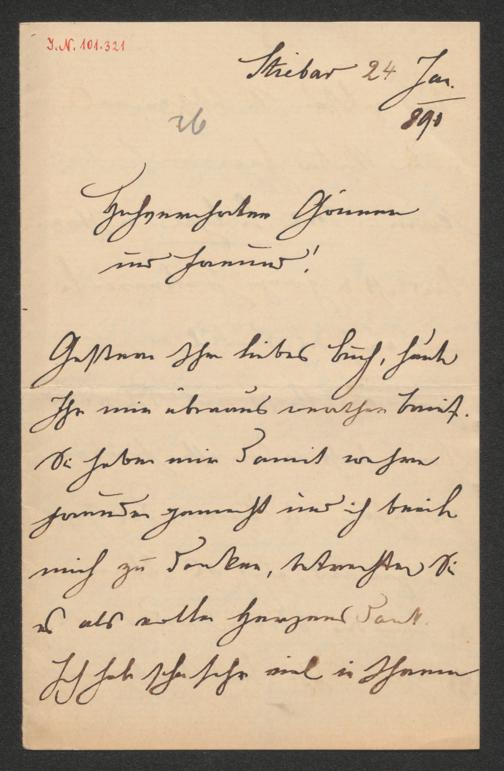 I.N. 101.321
Stiebar 24 Jan.
890
26
Hochverehrter Gönner
und Freund!
Gestern Ihr liebes Buch, heute
Ihr mir überaus werther Brief.
Sie haben mir damit wahre
Freuden gemacht und ich beeile
mich zu danken, betrachten Sie
es als vollen Herzens Dank.
Ich habe schon sehr viel in Ihrem